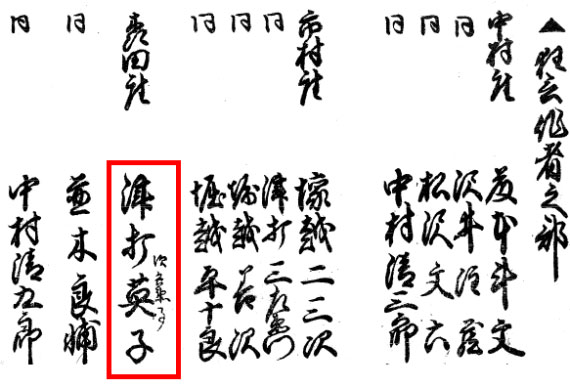 ▲狂言作者之部
中村座 藤本斗文
同 沢井注蔵
同 松沢文六
同 中村清三郎
市村座 壕越二三次
同 津打三左衛門
同 堀越菜沢
同 堀越平十良
森田座 津打英子
同 並木良輔
同 中村清九郎